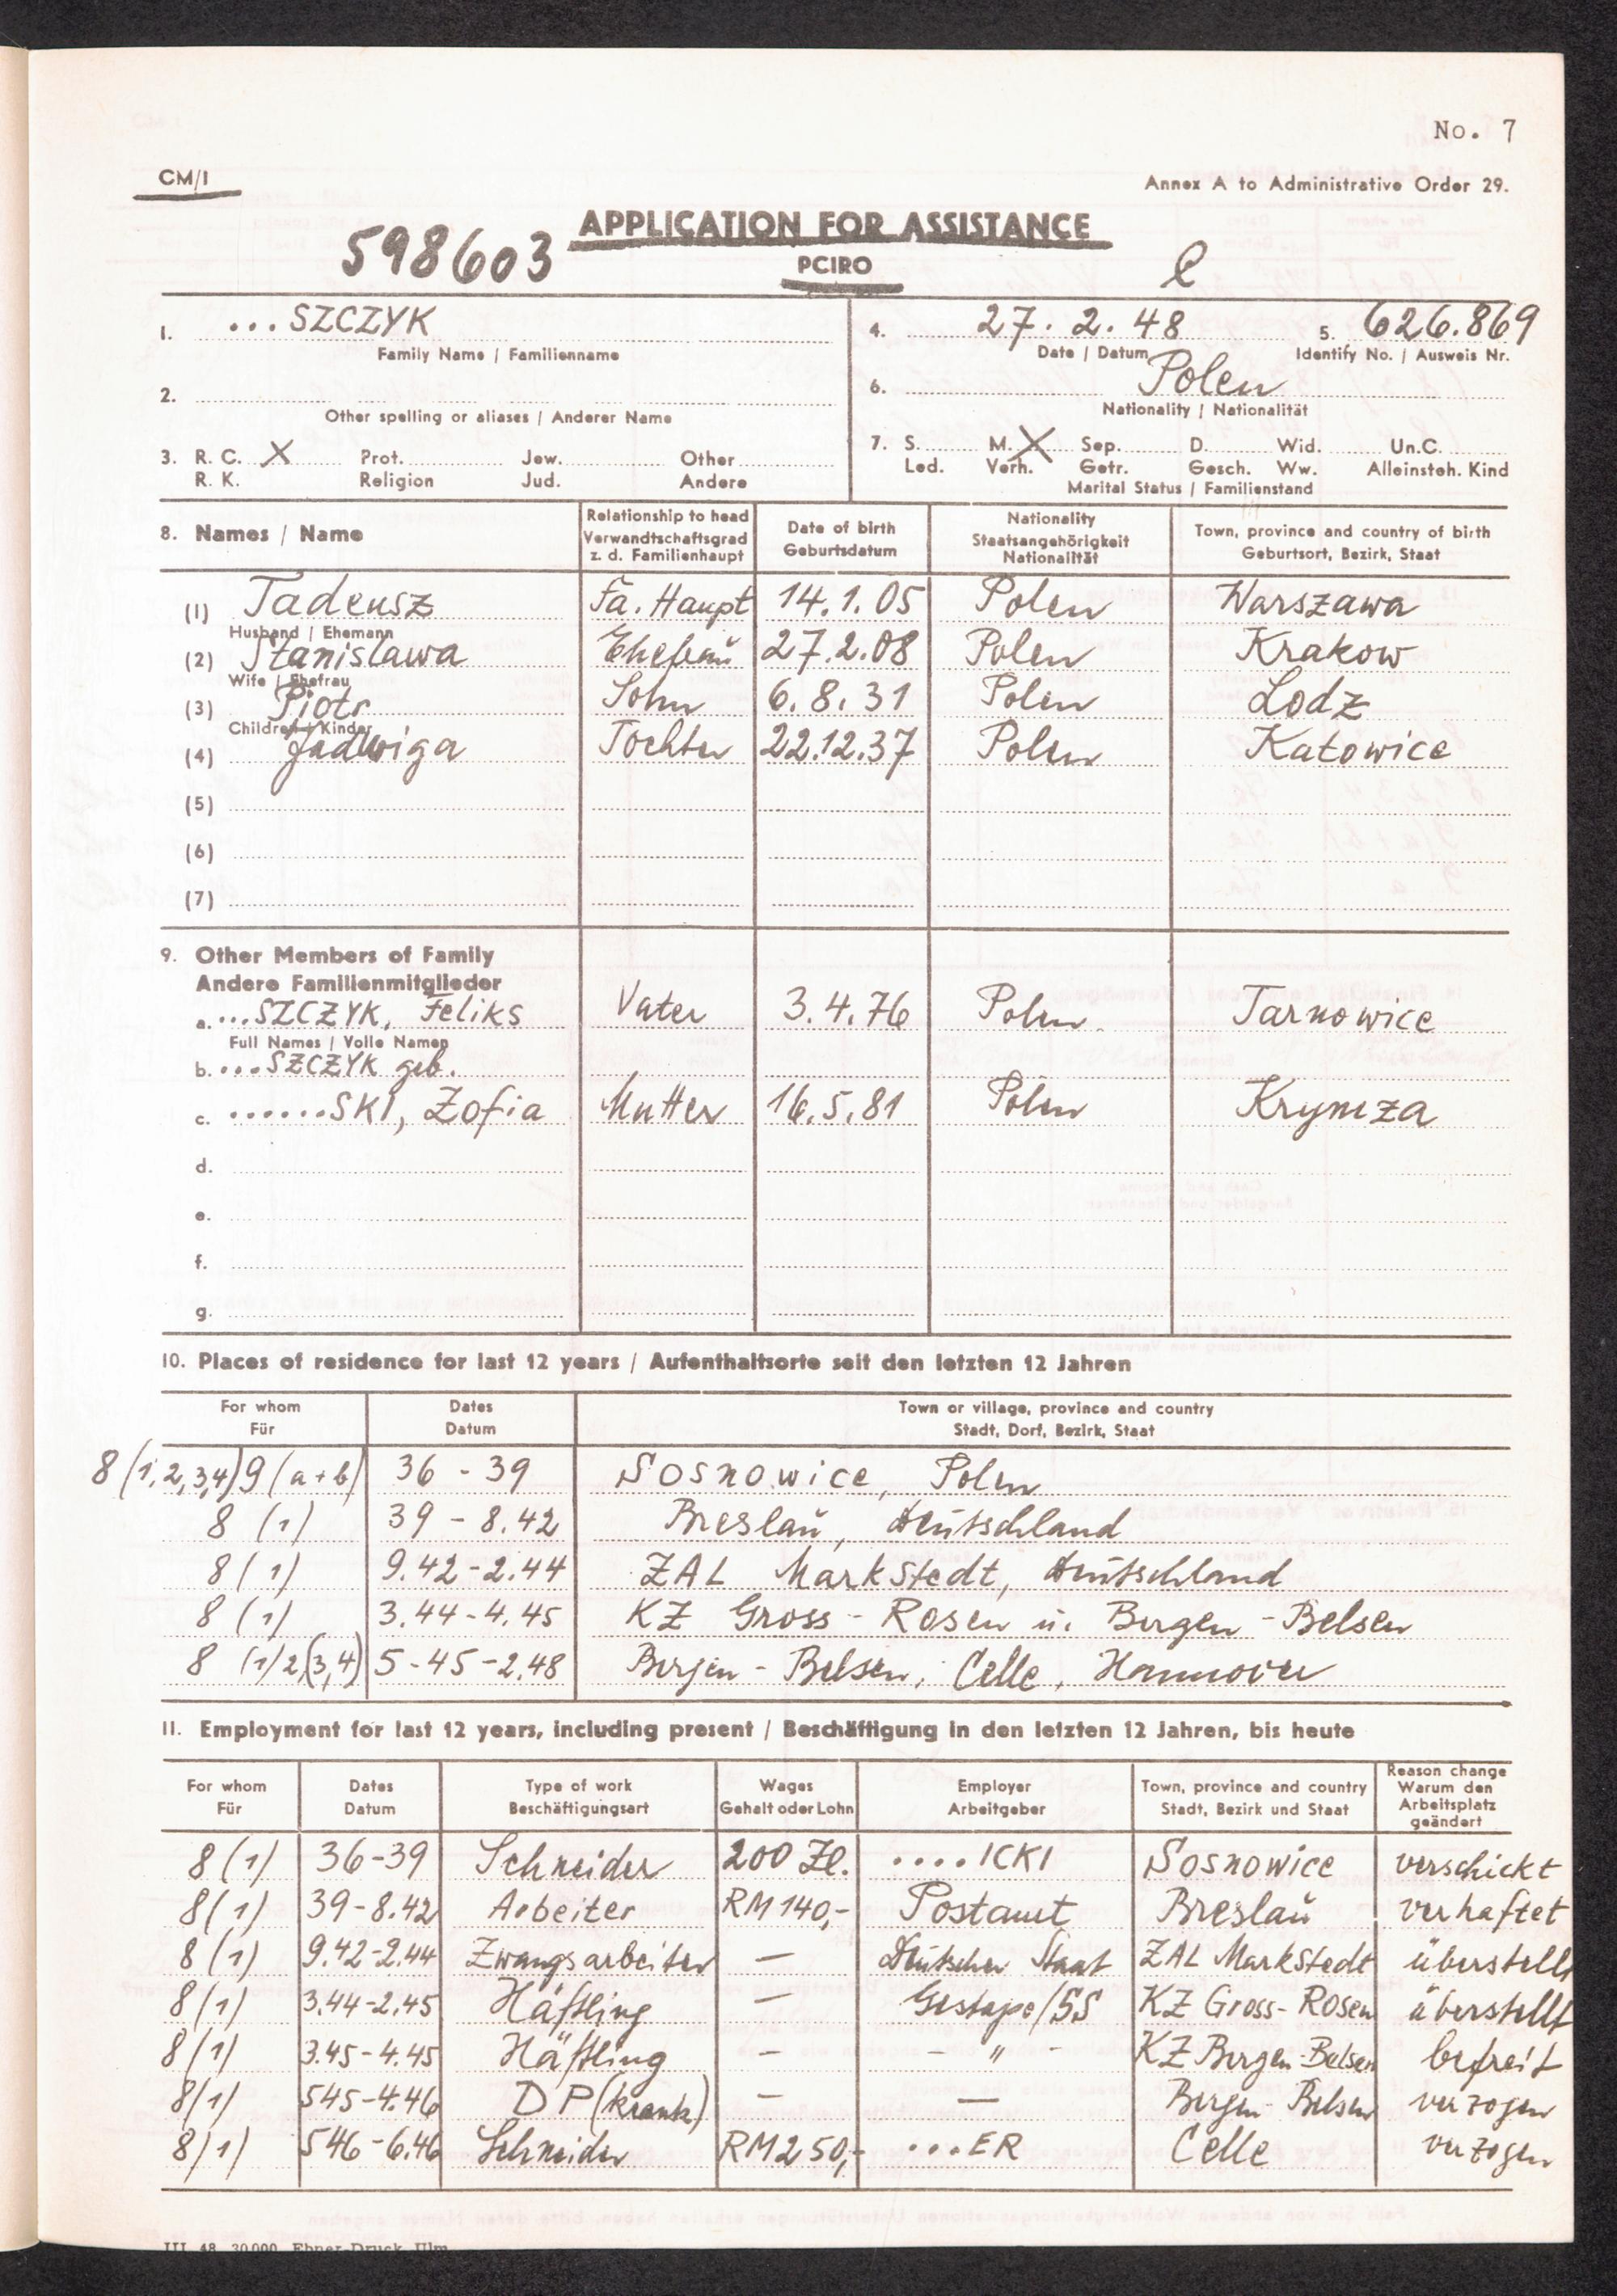 No. 7
CM/1
Annex A to Administrative Order 29.
APPLICATION FOR ASSISTANCE
598603
PCIRO
1. ...SZCZYK
Family Name / Familienname
4. 27. 2. 48 5. 626.869
Date / Datum Identify No. / Ausweis Nr.
2.
Other spelling or aliases / Anderer Name
6. Polen
Nationality / Nationalität
3. R. C. X Prot. Jew. Other
R. K. Religion Jud. Andere
7. S. M. X Sep. D. Wid. Un.C.
Led. Verh. Getr. Gesch. Ww. Alleinsteh. Kind
Marital Status / Familienstand
8. Names / Name
Relationship to head
Verwandtschaftsgrad
z. d. Familienhaupt
Date of birth
Geburtsdatum
Nationality
Staatsangehörigkeit
Nationalität
Town, province and country of birth
Geburtsort, Bezirk, Staat
(1) Tadeusz Fa. Haupt 14.1.05 Polen Warszawa
Husband / Ehemann
(2) Stanislawa Ehefrau 27.2.08 Polen Krakow
Wife / Ehefrau
(3) Piotr Sohn 6.8.31 Polen Lodz
Children / Kinder
(4) Jadwiga Tochter 22.12.37 Polen Katowice
(5)
(6)
(7)
9. Other Members of Family
Andere Familienmitglieder
a. ...SZCZYK, Feliks Vater 3.4.76 Polen Tarnowice
Full Names / Volle Namen
b. ...SZCZYK geb.
c. ......SKI, Zofia Mutter 16.5.81 Polen Krymza
d.
e.
f.
g.
10. Places of residence for last 12 years / Aufenthaltsorte seit den letzten 12 Jahren
For whom
Für
Dates
Datum
Town or village, province and country
Stadt, Dorf, Bezirk, Staat
8 (1,2,3,4) 9 (a+b) 36 - 39 Sosnowice, Polen
8 (1) 39 - 8.42 Breslau, Deutschland
8 (1) 9.42-2.44 ZAL Markstedt, Deutschland
8 (1) 3.44-4.45 KZ Gross-Rosen u. Bergen-Belsen
8 (1)2(3,4) 5-45-2.48 Bergen-Belsen, Celle, Hannover
11. Employment for last 12 years, including present / Beschäftigung in den letzten 12 Jahren, bis heute
For whom
Für
Dates
Datum
Type of work
Beschäftigungsart
Wages
Gehalt oder Lohn
Employer
Arbeitgeber
Town, province and country
Stadt, Bezirk und Staat
Reason change
Warum den
Arbeitsplatz
geändert
8 (1) 36-39 Schneider 200 Zl. ....ICKI Sosnowice verschickt
8 (1) 39-8.42 Arbeiter RM 140,- Postamt Breslau verhaftet
8 (1) 9.42-2.44 Zwangsarbeiter — Deutscher Staat ZAL Markstedt überstellt
8 (1) 3.44-2.45 Häftling — Gestapo/SS KZ Gross-Rosen überstellt
8 (1) 3.45-4.45 Häftling - - " - KZ Bergen-Belsen befreit
8 (1) 545-4.46 DP (krank) — — Bergen-Belsen verzogen
8 (1) 546-6.46 Schneider RM 250,- ...ER Celle verzogen
III. 48. 30.000. Ebner-Druck Ulm